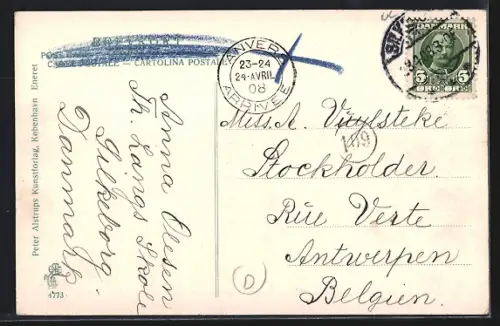 BREVKORT
CARTE POSTALE — CARTOLINA POSTALE
ANVERS
23-24
24 AVRIL
08
ARRIVÉE
DANMARK
5 5
ØRE ØRE
Peter Alstrups Kunstforlag, København Eneret
4773
Anna Olesen
Th. Langs Skole
Silkeborg
Danmark
Miss. A. Vuylsteke
Stockholder
Rue Verte
Antwerpen
Belgien.
D